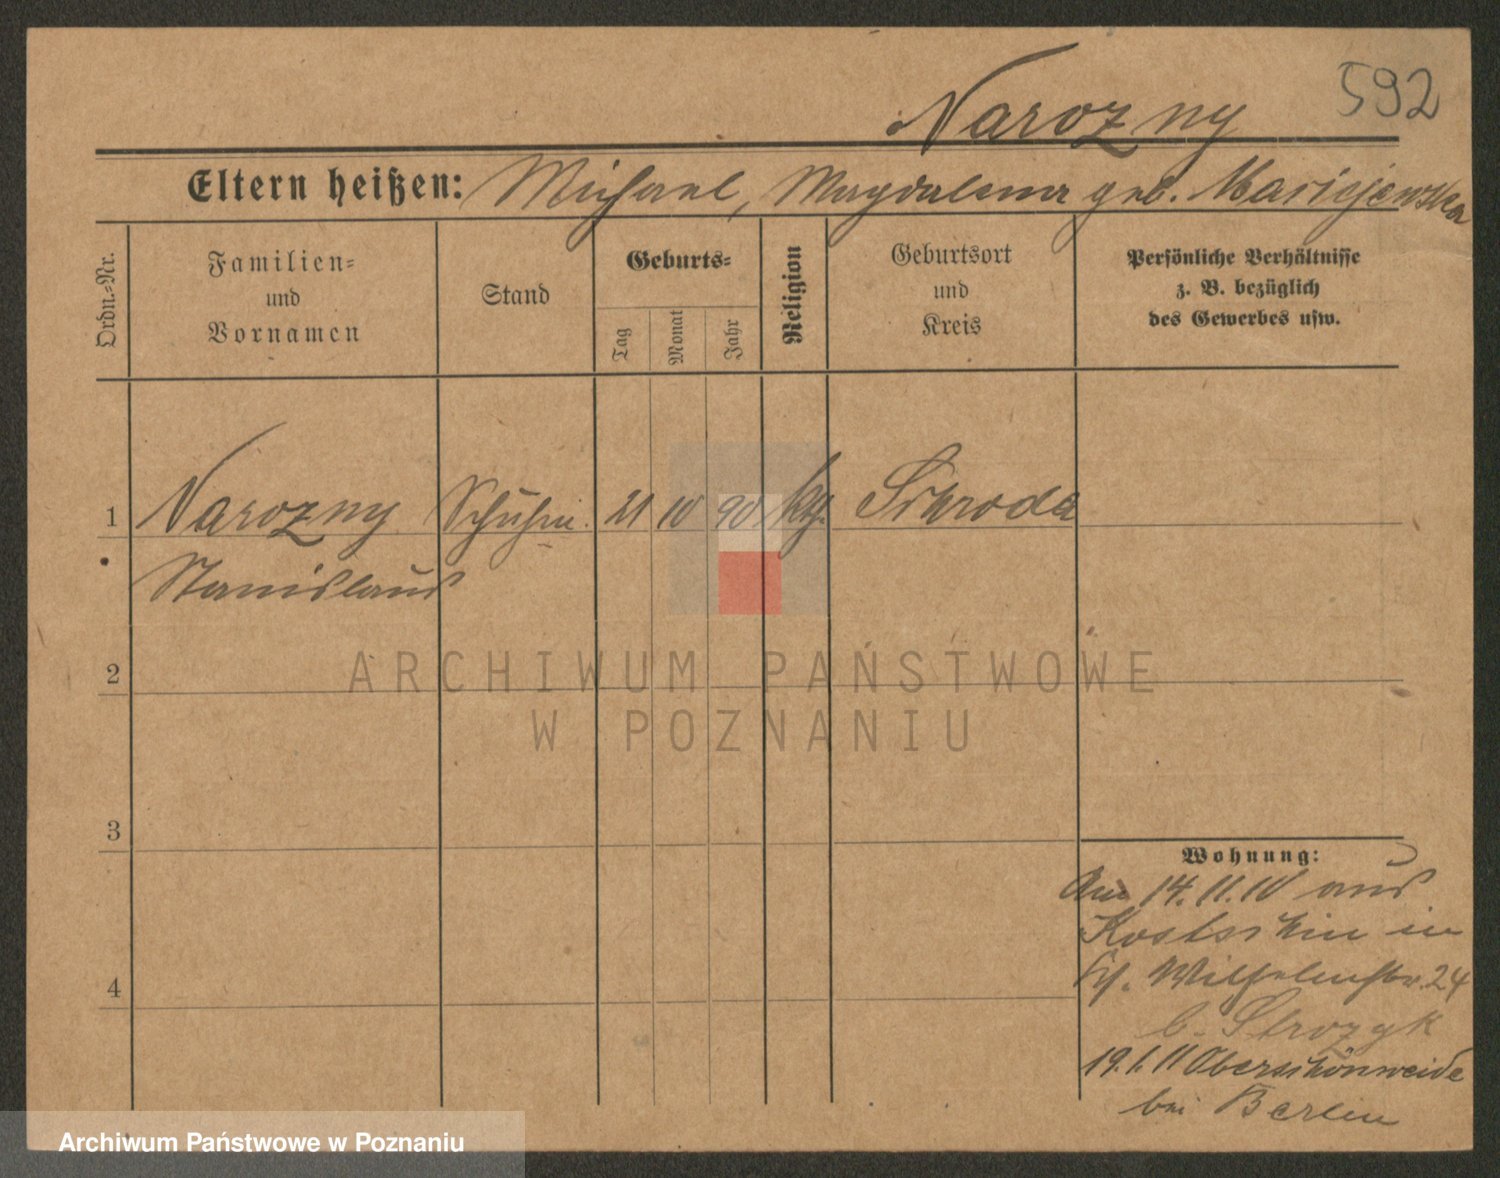 592
Narozny
Eltern heißen: Michael, Magdalena geb. Maciejewska
Ordn.-Nr.
Familien-
und
Vornamen
Stand
Geburts-
Tag
Monat
Jahr
Religion
Geburtsort
und
Kreis
Persönliche Verhältnisse
z. B. bezüglich
des Gewerbes usw.
1 Narozny Schuhm. 21 10 90 kth. Schroda
Stanislaus
2
3
4
Wohnung:
Am 14.11.10 aus
Kostschin in
Wilhelmstr. 24
b. Strozyk
19.1.11 Oberschönweide
bei Berlin
ARCHIWUM PAŃSTWOWE
W POZNANIU
Archiwum Państwowe w Poznaniu